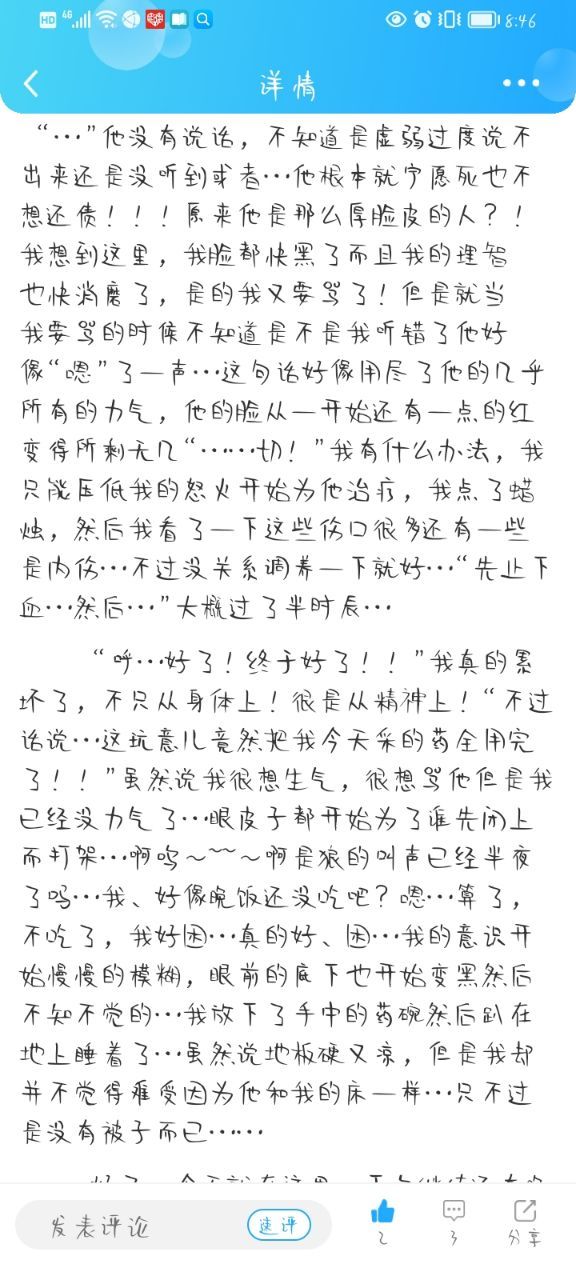 HD 4G 8:46
详情
“…”他没有说话，不知道是虚弱过度说不
出来还是没听到或者…他根本就宁愿死也不
想还债！！！原来他是那么厚脸皮的人？！
我想到这里，我脸都快黑了而且我的理智
也快消磨了，是的我又要骂了！但是就当
我要骂的时候不知道是不是我听错了他好
像“嗯”了一声…这句话好像用尽了他的几乎
所有的力气，他的脸从一开始还有一点的红
变得所剩无几“……切！”我有什么办法，我
只能压低我的怒火开始为他治疗，我点了蜡
烛，然后我看了一下这些伤口很多还有一些
是内伤…不过没关系调养一下就好…“先止下
血…然后…”大概过了半时辰…
“呼…好了！终于好了！！”我真的累
坏了，不只从身体上！很是从精神上！“不过
话说…这玩意儿竟然把我今天采的药全用完
了！！”虽然说我很想生气，很想骂他但是我
已经没力气了…眼皮子都开始为了谁先闭上
而打架…啊呜～～～啊是狼的叫声已经半夜
了吗…我、好像晚饭还没吃吧？嗯…算了，
不吃了，我好困…真的好、困…我的意识开
始慢慢的模糊，眼前的底下也开始变黑然后
不知不觉的…我放下了手中的药碗然后趴在
地上睡着了…虽然说地板硬又凉，但是我却
并不觉得难受因为他和我的床一样…只不过
是没有被子而已……
发表评论 速评 2 3 分享